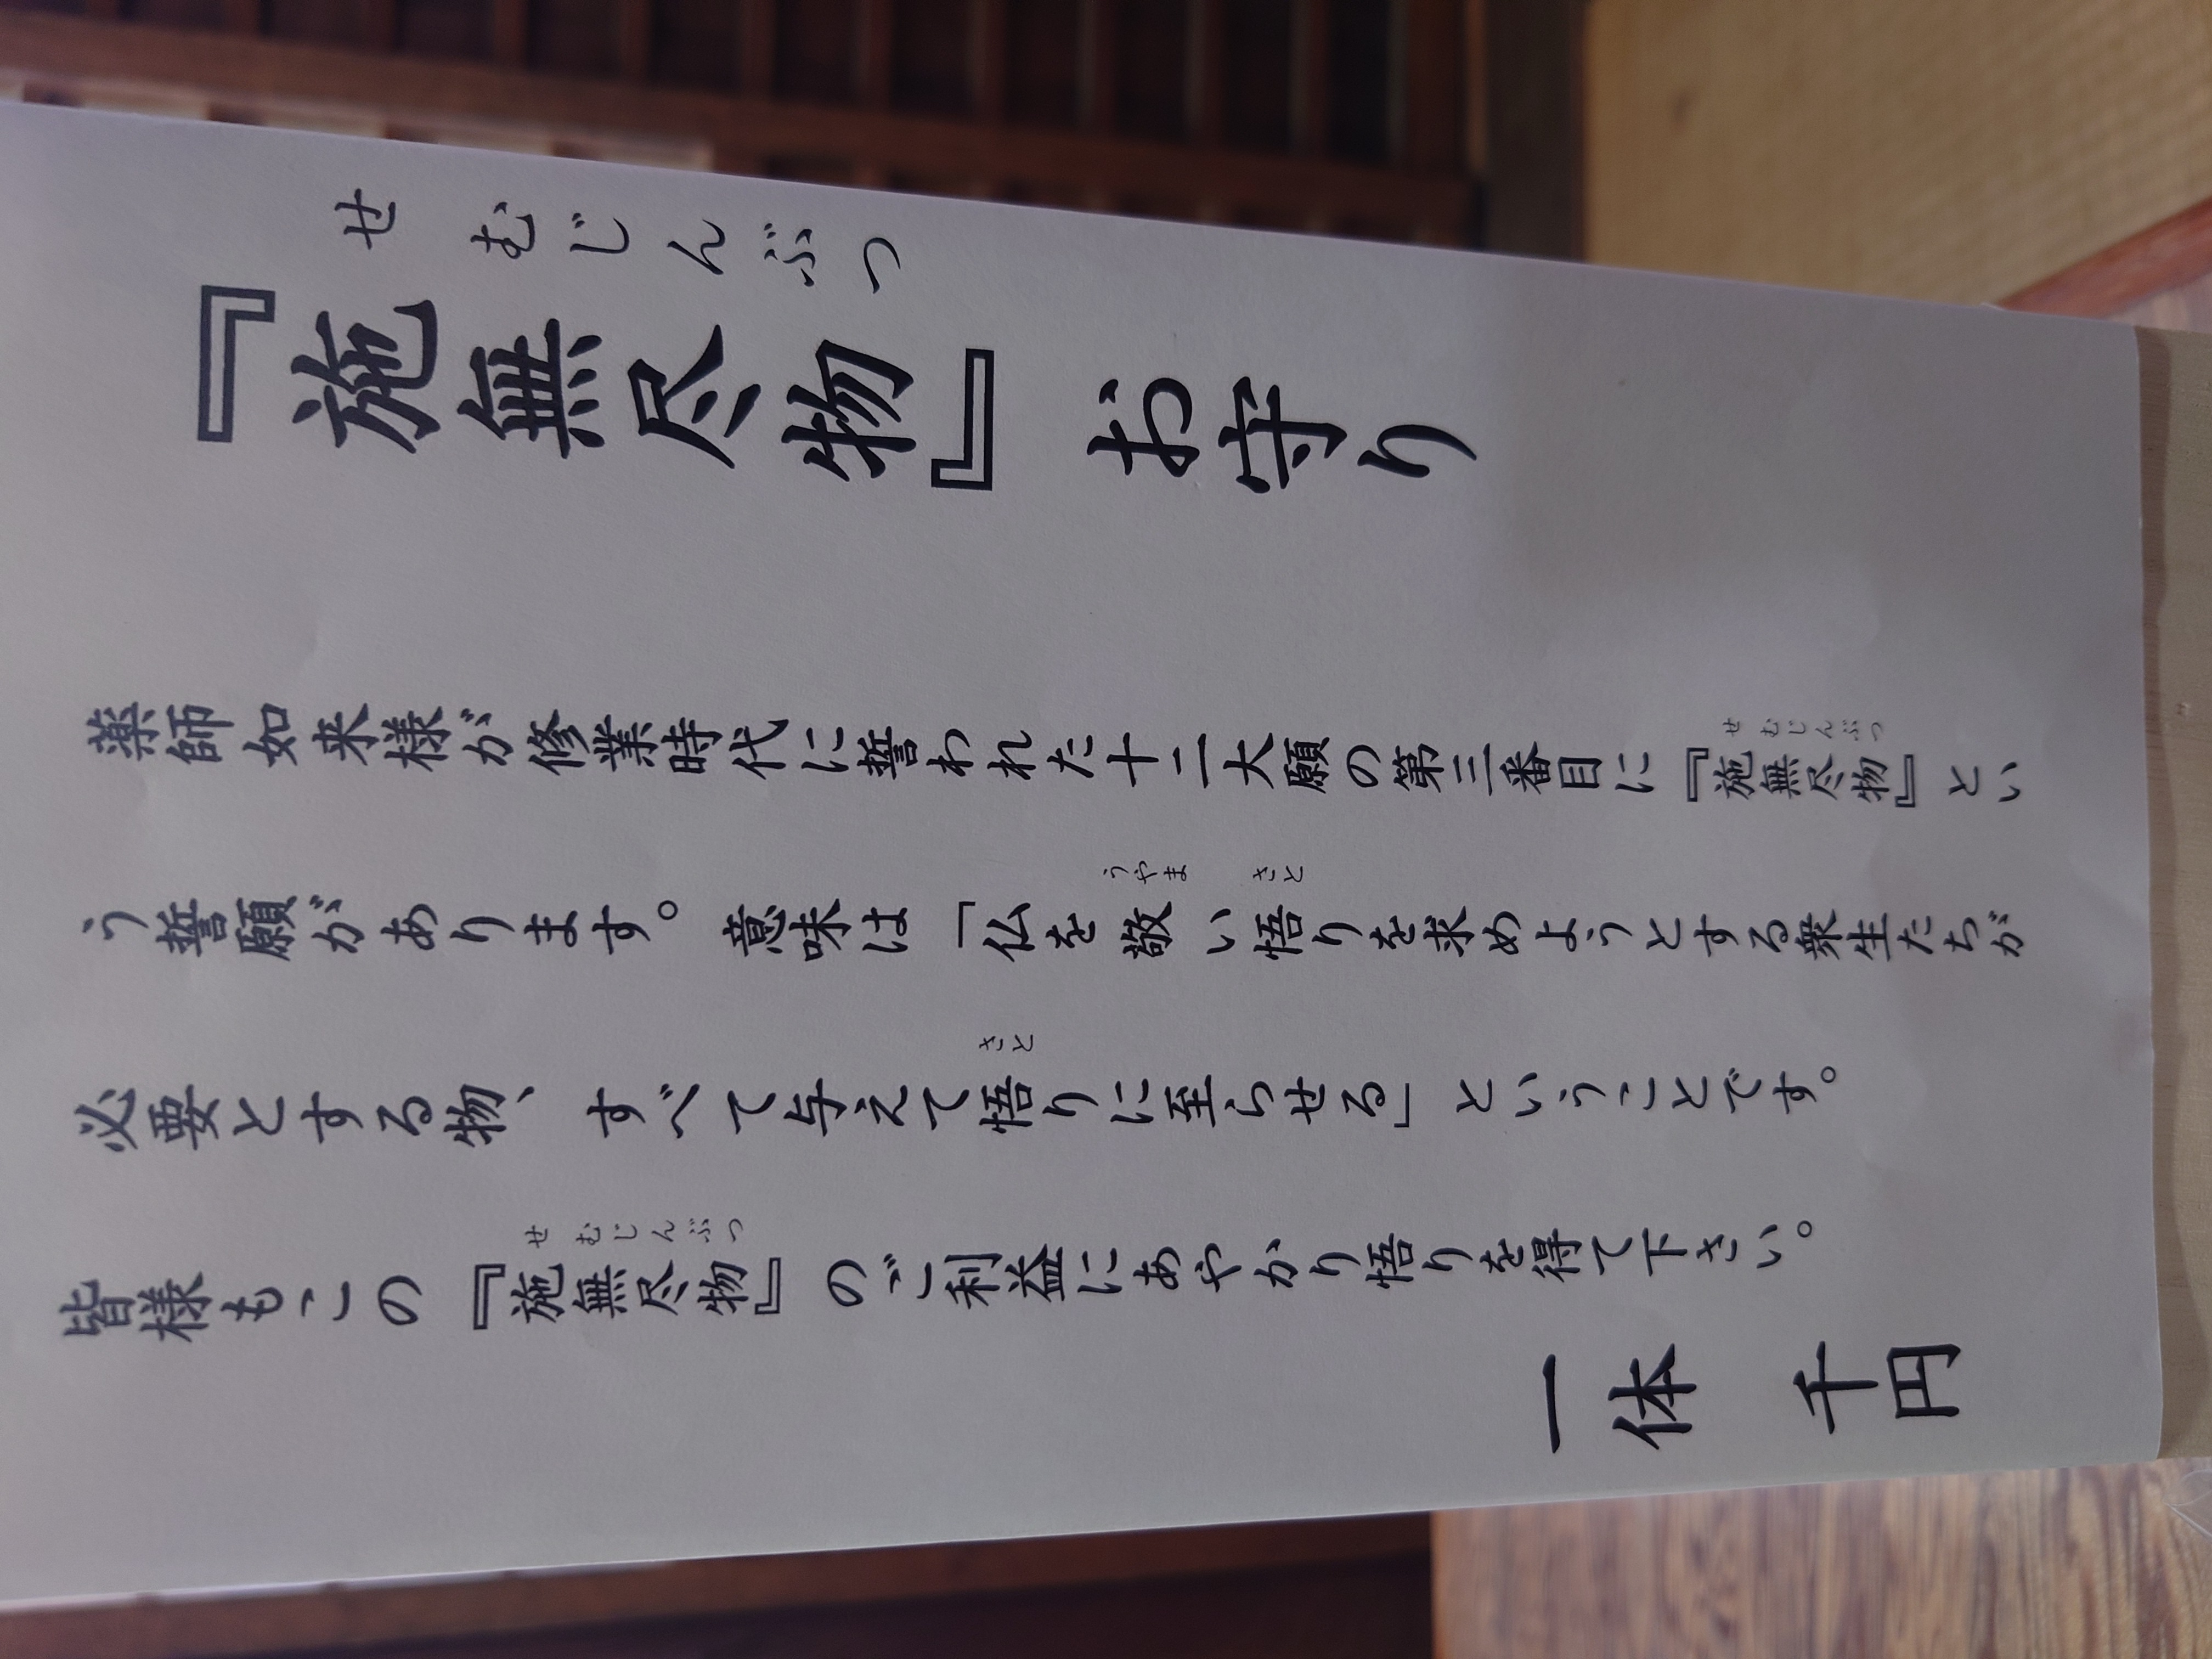 せむじんぶつ
『施無尽物』お守り
せむじんぶつ
薬師如来様が修業時代に誓われた十二大願の第三番目に『施無尽物』とい
うやま さと
う誓願があります。意味は「仏を敬い悟りを求めようとする衆生たちが
さと
必要とする物、すべて与えて悟りに至らせる」ということです。
せむじんぶつ
皆様もこの『施無尽物』のご利益にあやかり悟りを得て下さい。
一体 千円